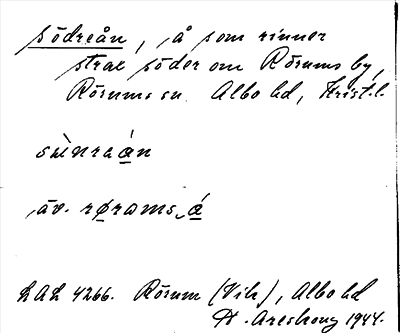 södreån, å som rinner
strax söder om Rörums by,
Rörums sn Albo hd, Krist. l.
sø̀nraán
äv. rørams á
LAL 4266. Rörum (Vik), Albo hd
H. Areskoug 1944.